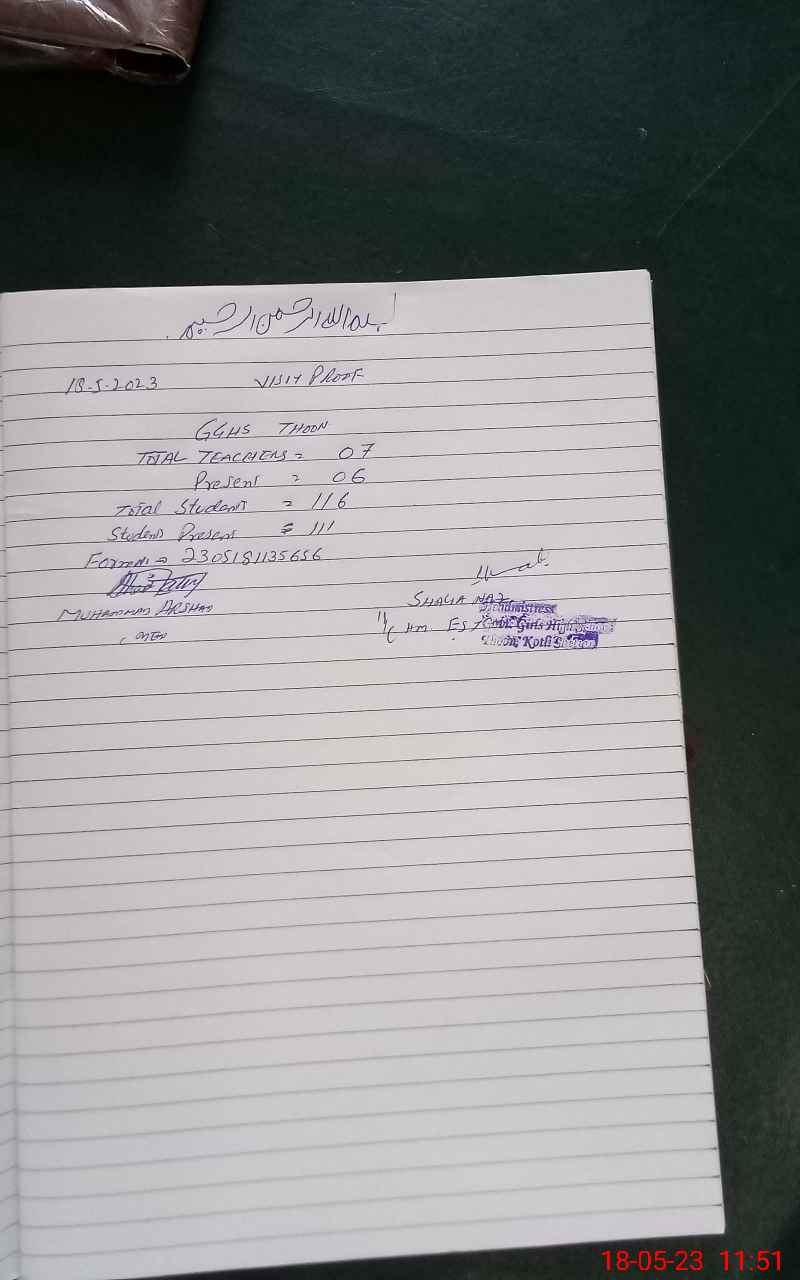 بسم اللہ الرحمن الرحیم
18-5-2023 VISIT PROOF
GGHS THOON
TOTAL TEACHERS = 07
Present = 06
Total Students = 116
Students Present = 111
2305181135656
MUHAMMAD ARSHAD
SHAZIA NAZ
I/C HM EST
Headmistress
Govt. Girls High
Thoon, Kotli
18-05-23 11:51